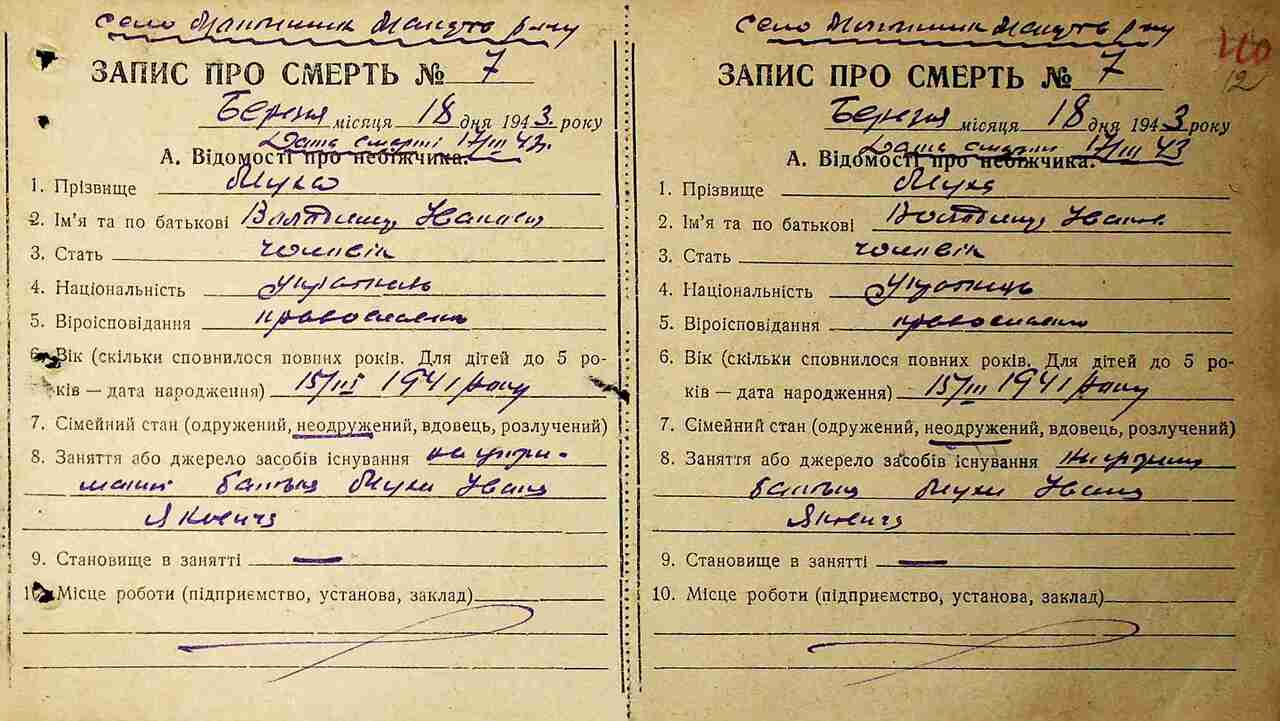 село
ЗАПИС ПРО СМЕРТЬ № 7
Березня місяця 18 дня 1943. року
Дата смерті 17/III 43.
А. Відомості про небіжчика.
1. Прізвище Муха
2. Ім’я та по батькові Володимир
3. Стать чоловік
4. Національність українець
5. Віроісповідання
6. Вік (скільки сповнилося повних років. Для дітей до 5 ро-
ків — дата народження) 15/III 1941 року
7. Сімейний стан (одружений, неодружений, вдовець, розлучений)
8. Заняття або джерело засобів існування на утри-
манні батька Мухи Івана
Яковича
9. Становище в занятті —
10. Місце роботи (підприємство, установа, заклад)
село
40
12
ЗАПИС ПРО СМЕРТЬ № 7
Березня місяця 18 дня 1943 року
Дата смерти 17/III 43
А. Відомості про небіжчика.
1. Прізвище Муха
2. Ім’я та по батькові Володимир Іванов
3. Стать чоловік
4. Національність українець
5. Віроісповідання
6. Вік (скільки сповнилося повних років. Для дітей до 5 ро-
ків — дата народження) 15/III 1941 року
7. Сімейний стан (одружений, неодружений, вдовець, розлучений)
8. Заняття або джерело засобів існування
батька Мухи Івана
Яковича
9. Становище в занятті —
10. Місце роботи (підприємство, установа, заклад)